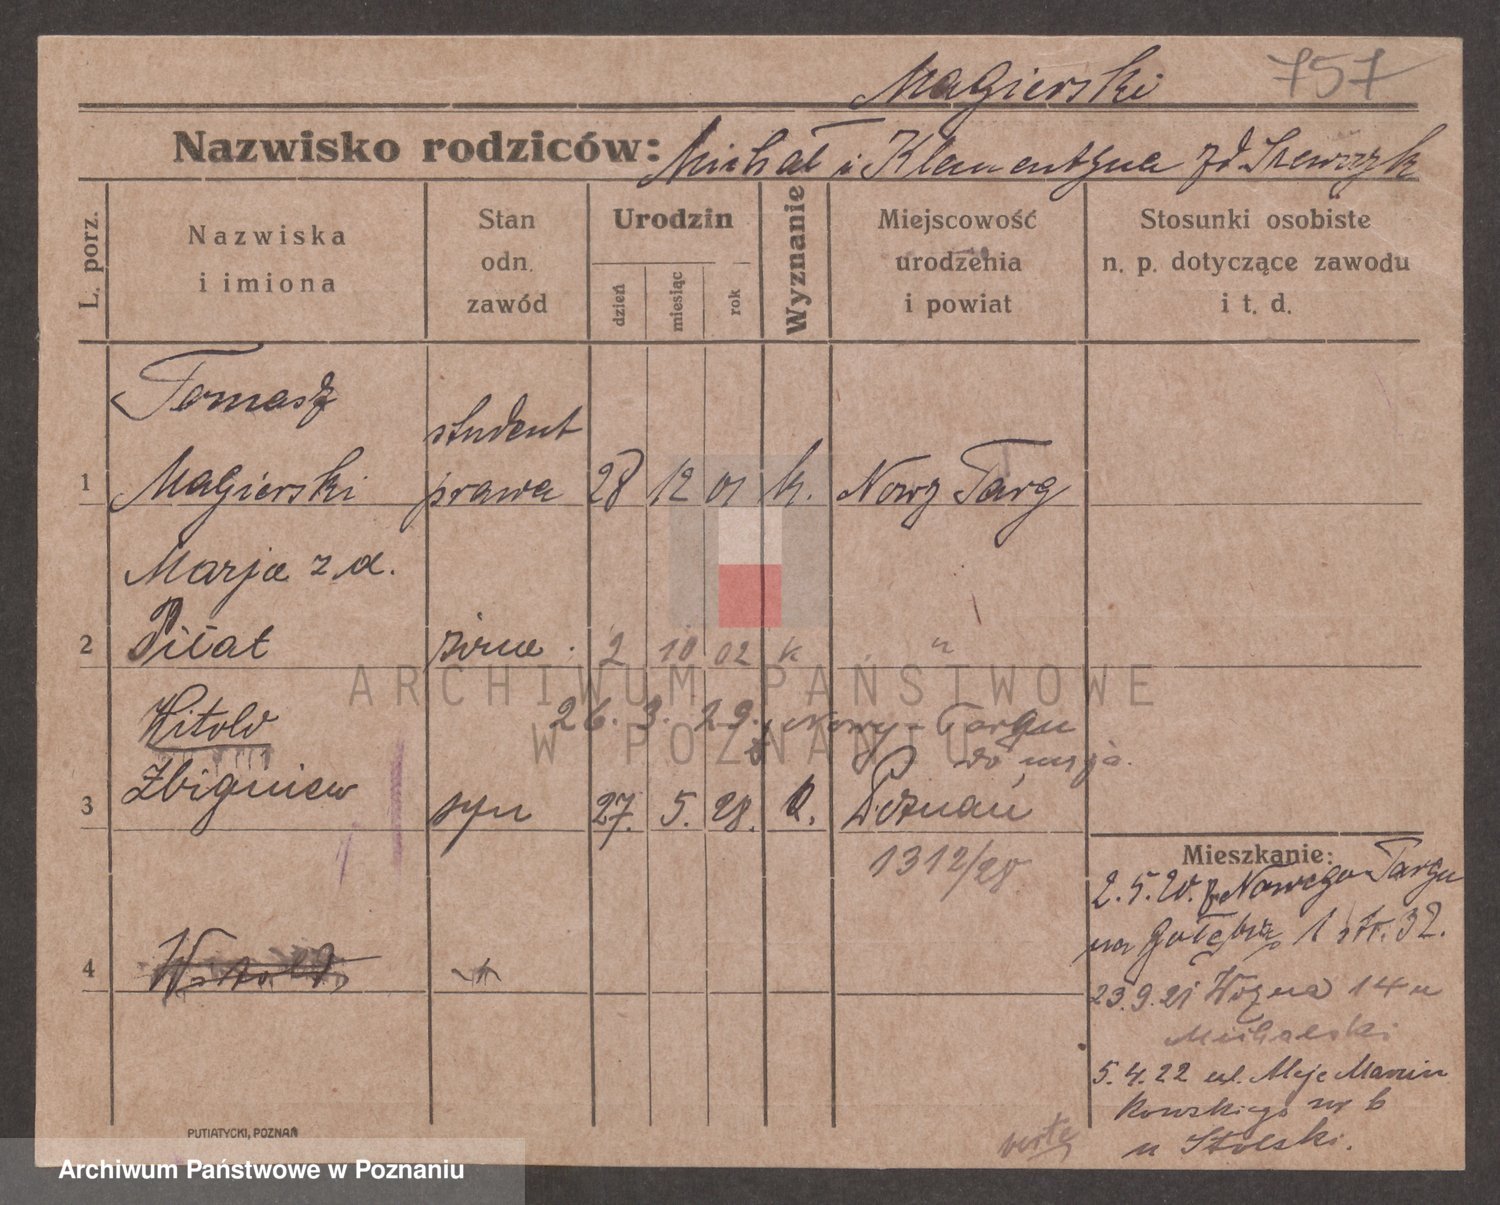 Magierski 757
Nazwisko rodziców: Michał i Klementyna zd Szewczyk
L. porz.
Nazwiska
i imiona
Stan
odn.
zawód
Urodzin
dzień
miesiąc
rok
Wyznanie
Miejscowość
urodzenia
i powiat
Stosunki osobiste
n. p. dotyczące zawodu
i t. d.
Tomasz
student
1 Magierski prawa 28 12 01 k. Nowy Targ
Marja z d.
2 Piłat żona 2 10 02 k "
Witold 26. 3. 29. Nowy-Targu
Zbigniew
3 syn 27. 5. 28. k. Poznań
1312/28
4 Witold
Mieszkanie:
2.5.20. z Nowego Targu
na Gołębią 1 str. 32.
23.9.21 Woźna 14 u
Michalski
5.4.22 ul. Aleje Marcin
kowskiego nr 6
u Stolski.
verte
PUTIATYCKI, POZNAŃ
ARCHIWUM PAŃSTWOWE
W POZNANIU
Archiwum Państwowe w Poznaniu